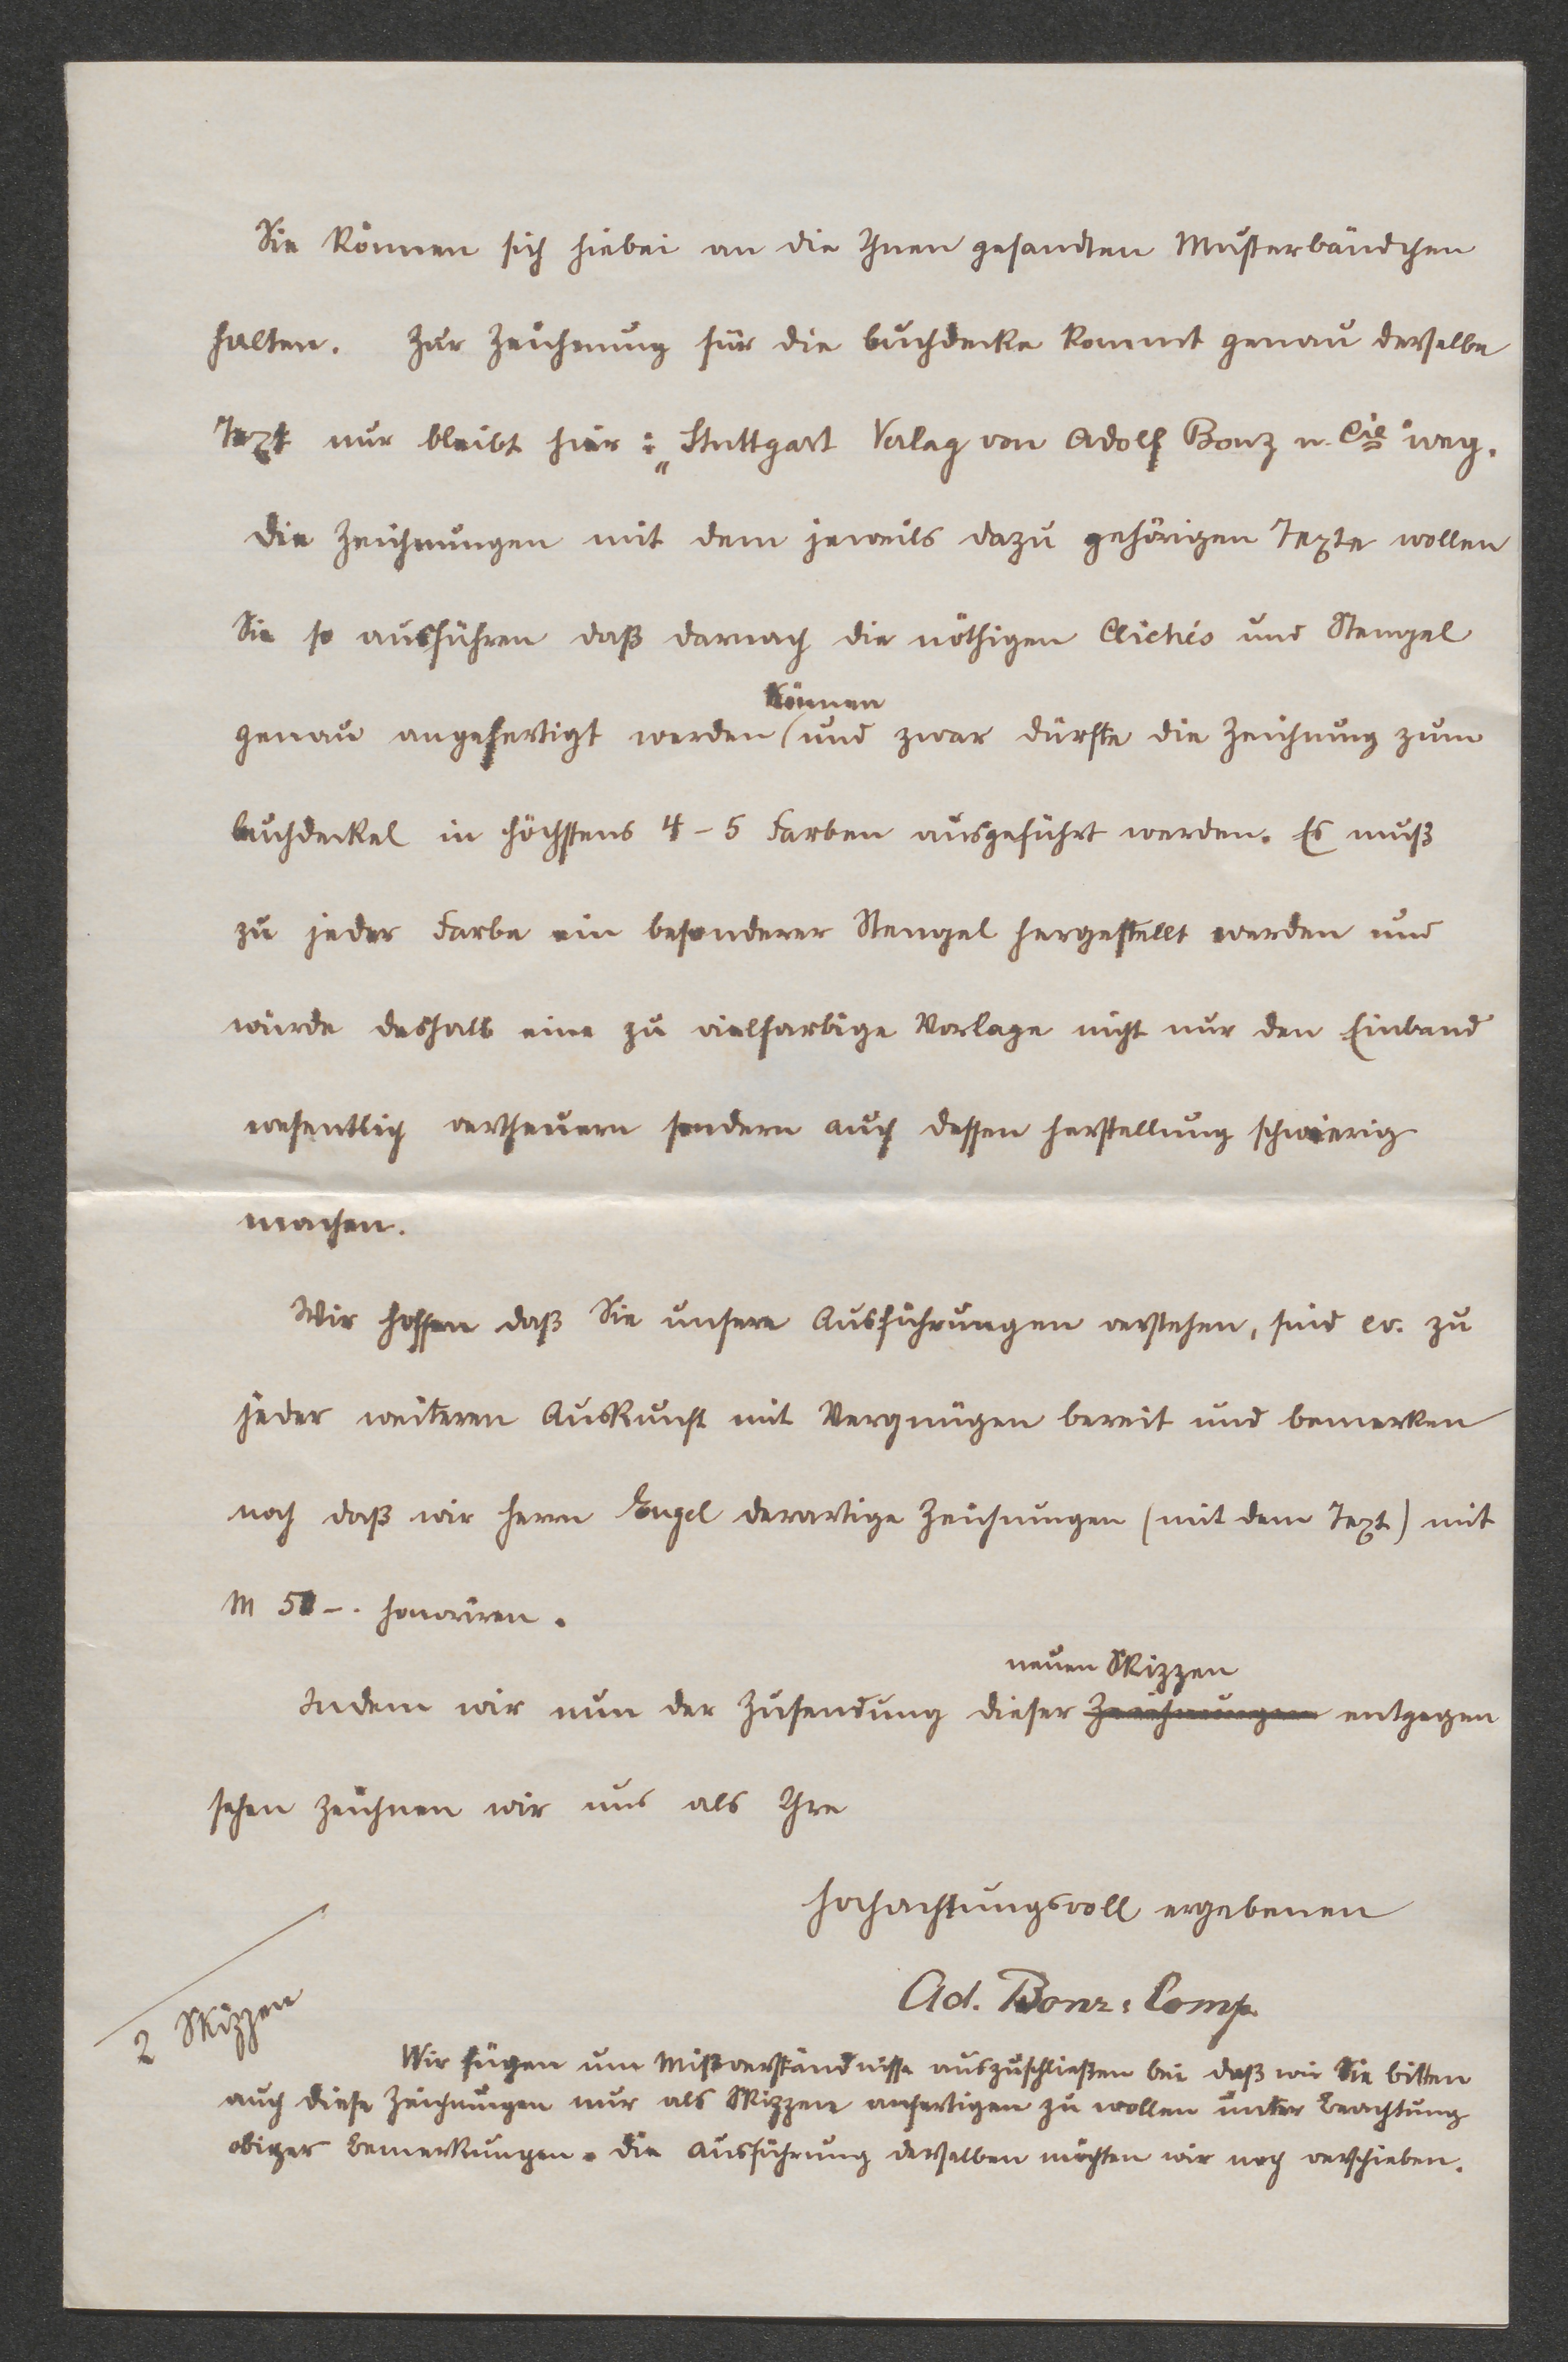 Sie können sich hiebei an die Ihnen gesandten Musterbändchen
halten. Zur Zeichnung für die Buchdecke kommt genau derselbe
Text nur bleibt hier: „Stuttgart Verlag von Adolf Bonz u. Cie“ weg.
Die Zeichnungen mit dem jeweils dazu gehörigen Texte wollen
Sie so ausführen daß darnach die nöthigen Clichés und Stengel
können
genau angefertigt werden (und zwar dürfte die Zeichnung zum
Buchdeckel in höchstens 4-5 Farben ausgeführt werden. Es muß
zu jeder Farbe ein besonderer Stengel hergestellt werden und
würde deshalb eine zu vielfarbige Vorlage nicht nur den Einband
wesentlich vertheuern sondern auch dessen Herstellung schwierig
machen.
Wir hoffen daß Sie unsere Ausführungen verstehen, sind ev. zu
jeder weiteren Auskunft mit Vergnügen bereit und bemerken
noch daß wir Herrn Engel derartige Zeichnungen (mit dem Text) mit
M 50 -. honoriren.
neuen Skizzen
Indem wir nun der Zusendung dieser Zeichnungen entgegen
sehen zeichnen wir uns als Ihre
hochachtungsvoll ergebenen
Ad. Bonz & Comp.
2 Skizzen
Wir fügen um Mißverständnisse auszuschließen bei daß wir Sie bitten
auch diese Zeichnungen nur als Skizzen anfertigen zu wollen unter Beachtung
obiger Bemerkungen. Die Ausführung derselben möchten wir noch verschieben.